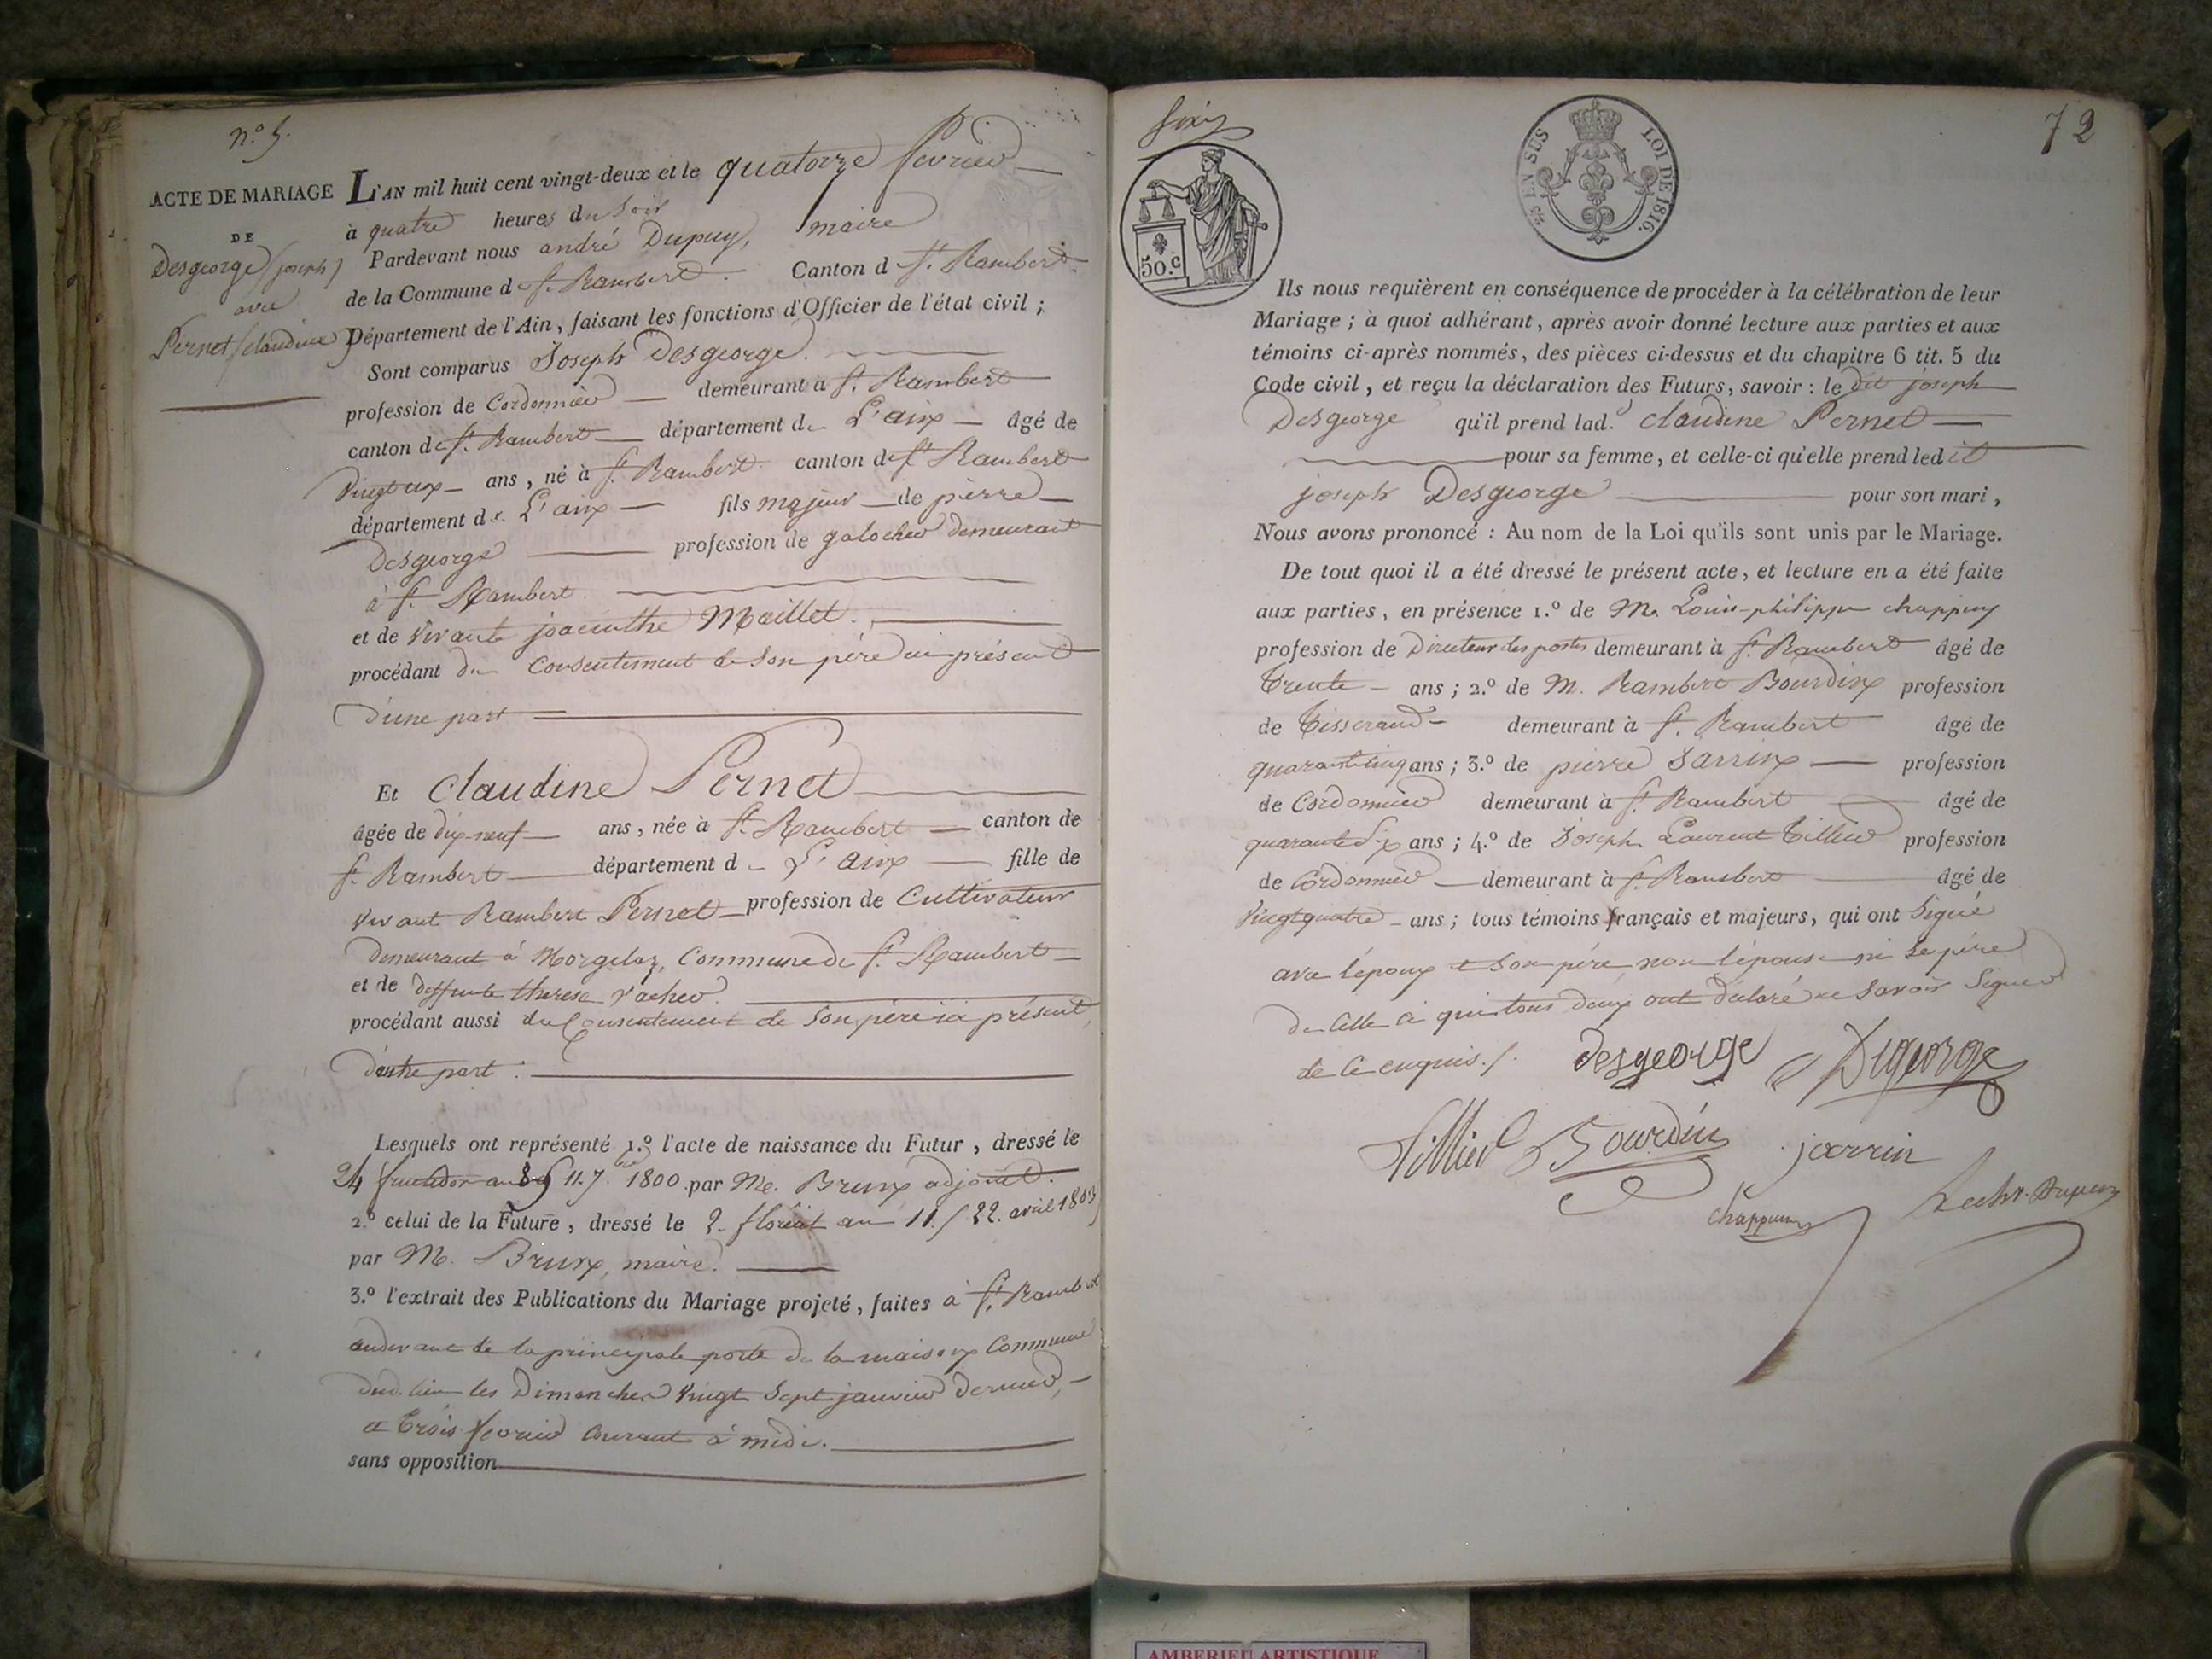 n.º 5.
ACTE DE MARIAGE
DE
Desgeorge (joseph)
avec
Pernet (claudine)
L'AN mil huit cent vingt-deux et le quatorze février
à quatre heures du soir
Pardevant nous andré Dupuy, maire
de la Commune de St. Rambert. Canton d St. Rambert.
Département de l'Ain, faisant les fonctions d'Officier de l'état civil ;
Sont comparus Joseph Desgeorge.
profession de Cordonnier demeurant à St. Rambert
canton de St. Rambert département de L'ain âgé de
Vingt un ans, né à St. Rambert canton de St Rambert
département de L'ain fils majeur de pierre
Desgeorge profession de galocher demeurant
à St. Rambert.
et de vivante jacinthe Maillet.
procédant du Consentement de son père ici présent
d'une part
Et Claudine Pernet
âgée de dix-neuf ans, née à St. Rambert canton de
St. Rambert département d L'ain fille de
vivant Rambert Pernet profession de Cultivateur
demeurant à Morgelaz, Commune de St. Rambert
et de deffunte therese Vacher.
procédant aussi du Consentement de son père ici présent,
d'autre part :
Lesquels ont représenté 1.º l'acte de naissance du Futur, dressé le
24 fructidor an 8 ( 11. 7.bre 1800 par Mr. Brun adjoint.
2.º celui de la Future, dressé le 2. floréal an 11. ( 22. avril 1803)
par M. Brun, maire.
3.º l'extrait des Publications du Mariage projeté, faites à St. Rambert
audevant de la principale porte de la maison Commune
dud. lieu les Dimanches vingt sept janvier dernier,
et trois février courant à midi.
sans opposition
72
50.c
EN SUS
LOI DE 1816.
Ils nous requièrent en conséquence de procéder à la célébration de leur
Mariage ; à quoi adhérant, après avoir donné lecture aux parties et aux
témoins ci-après nommés, des pièces ci-dessus et du chapitre 6 tit. 5 du
Code civil, et reçu la déclaration des Futurs, savoir : le dit joseph
Desgeorge qu'il prend lad. Claudine Pernet
pour sa femme, et celle-ci qu'elle prend ledit
joseph Desgeorge pour son mari,
Nous avons prononcé : Au nom de la Loi qu'ils sont unis par le Mariage.
De tout quoi il a été dressé le présent acte, et lecture en a été faite
aux parties, en présence 1.º de M. Louis-philippe chappuy
profession de Directeur des postes demeurant à St. Rambert âgé de
trente ans ; 2.º de M. Rambert Bourdin profession
de Tisserand demeurant à St. Rambert âgé de
quarante cinq ans ; 3.º de pierre Jarrin profession
de Cordonnier demeurant à St. Rambert âgé de
quarante six ans ; 4.º de Joseph Laurent Tillier profession
de Cordonnier demeurant à St. Rambert âgé de
vingt quatre ans ; tous témoins français et majeurs, qui ont signé
avec l'époux et son père non l'épouse ni le père
de Celle ci qui tous deux ont déclaré ne savoir signer
de Ce enquis./.
desgeorge Degeorge
Tillier Bourdin jarrin
Chappuy Dupuy
AMBERIEU ARTISTIQUE